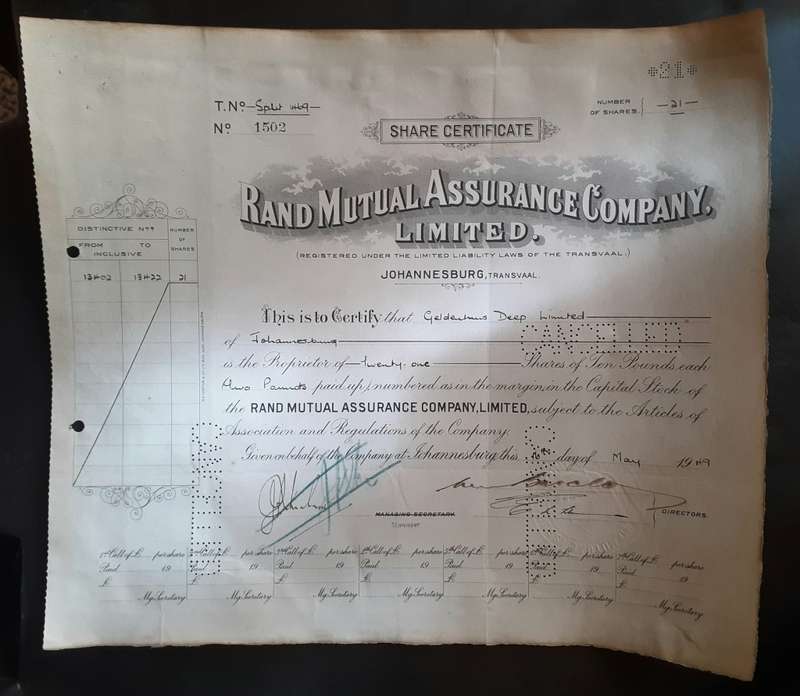 *21*
T. No Split 1469
No 1502
NUMBER OF SHARES 21
SHARE CERTIFICATE
RAND MUTUAL ASSURANCE COMPANY,
LIMITED.
(REGISTERED UNDER THE LIMITED LIABILITY LAWS OF THE TRANSVAAL.)
JOHANNESBURG, TRANSVAAL.
DISTINCTIVE Nos NUMBER OF SHARES
FROM TO
INCLUSIVE
13402 13422 21
This is to Certify that Geldenhuis Deep Limited
of Johannesburg
CANCELLED
is the Proprietor of twenty-one Shares of Ten Pounds each
two Pounds paid up, numbered as in the margin, in the Capital Stock of
the RAND MUTUAL ASSURANCE COMPANY, LIMITED, subject to the Articles of
Association and Regulations of the Company.
Given on behalf of the Company at Johannesburg this day of May 1949
MANAGING SECRETARY
DIRECTORS.
1st Call of £ per share 2nd Call of £ per share 3rd Call of £ per share 4th Call of £ per share 5th Call of £ per share 6th Call of £ per share 7th Call of £ per share
Paid 19 Paid 19 Paid 19 Paid 19 Paid 19 Paid 19 Paid 19
£ £ £ £ £ £ £
Mg. Secretary Mg. Secretary Mg. Secretary Mg. Secretary Mg. Secretary Mg. Secretary Mg. Secretary